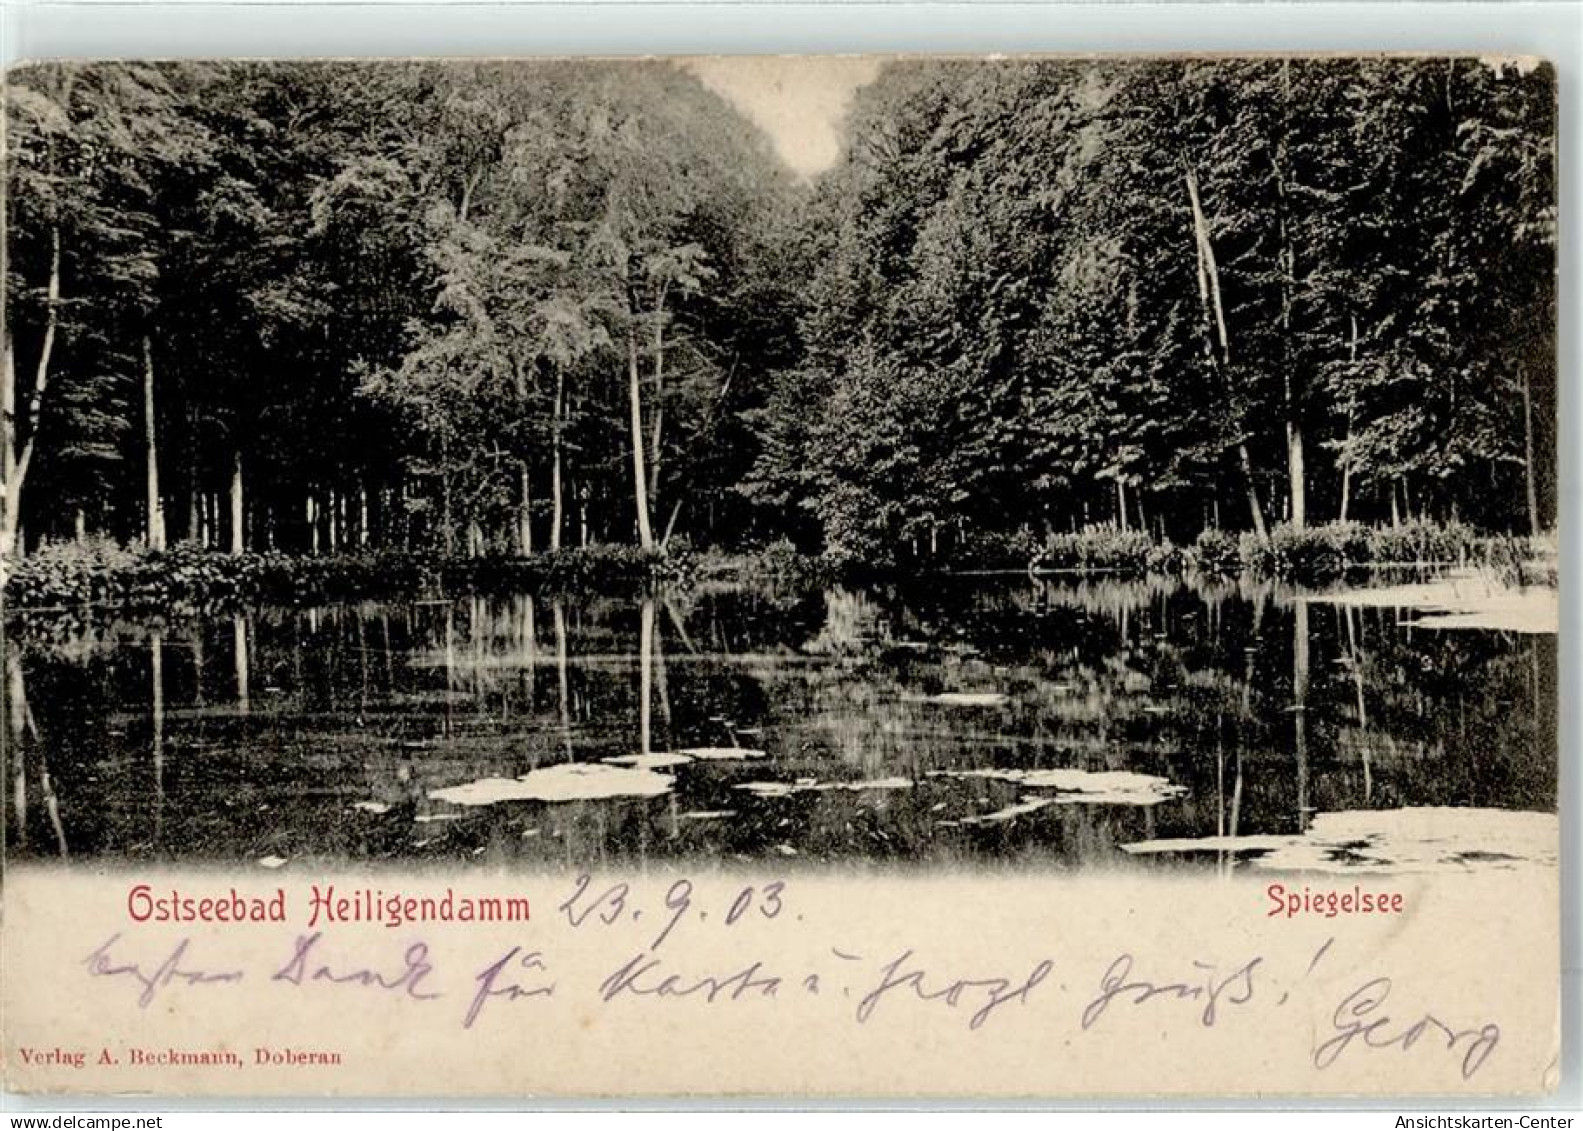 Ostseebad Heiligendamm 23.9.03. Spiegelsee
besten Dank für Karte u. herzl. Gruß!
Georg
Verlag A. Beckmann, Doberan
www.delcampe.net
Ansichtskarten-Center